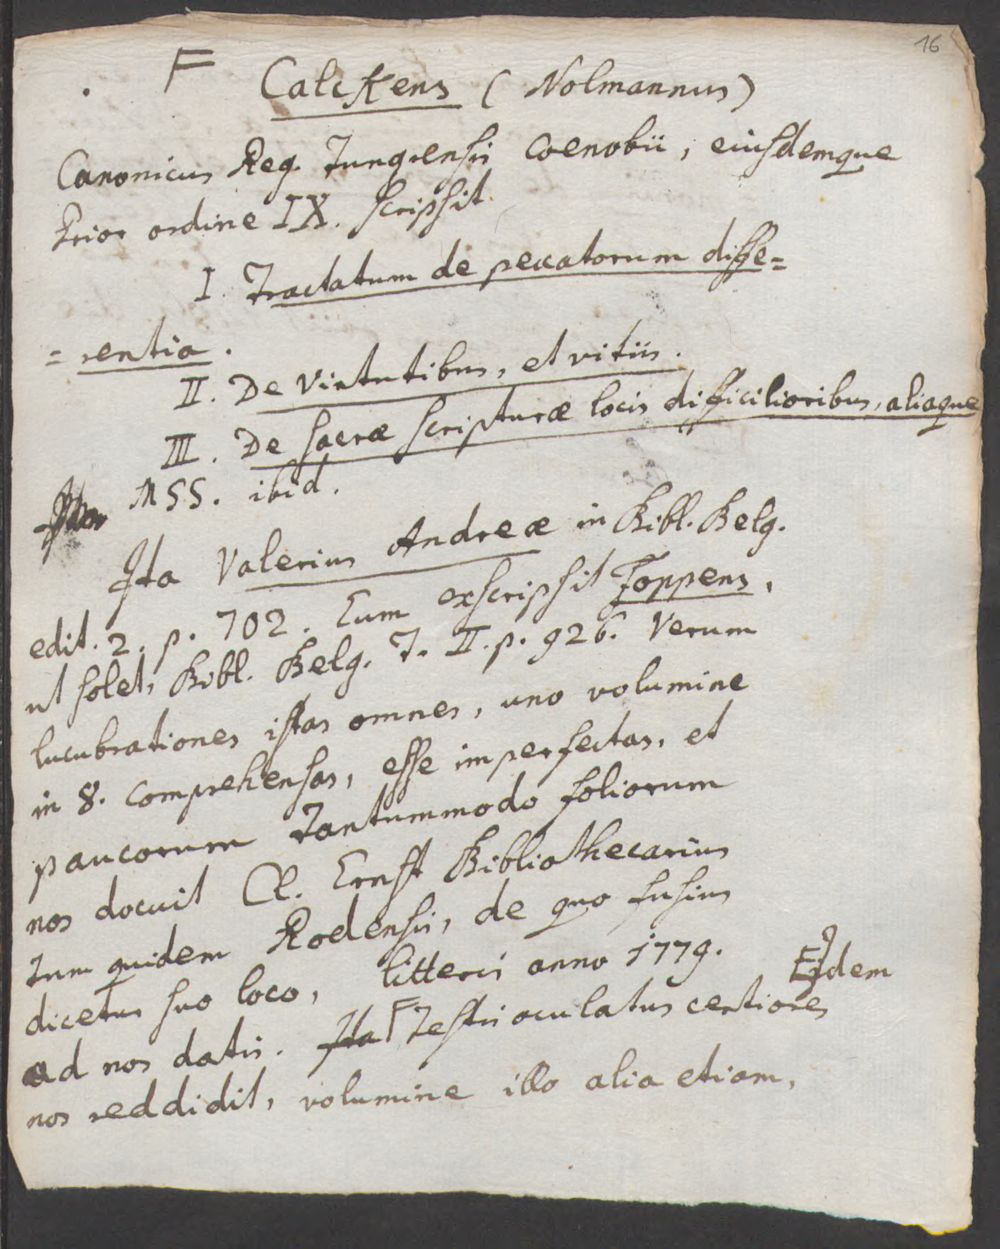 16
F
Calckens (Nolmannus)
Canonicus Reg. Tungrensis coenobii, eiusdemque
Prior ordine IX. scripsit.
I. Tractatum de peccatorum diffe=
=rentia.
II. De virtutibus, et vitiis.
III. De sacræ scripturæ locis difficilioribus, aliaque
MSS. ibid.
Ita Valerius Andreæ in Bibl. Belg.
edit. 2. p. 702. Eum exscripsit Foppens,
ut solet, Bibl. Belg. T. II. p. 926. Verum
lucubrationes istas omnes, uno volumine
in 8. comprehensas, esse imperfectas, et
paucorum tantummodo foliorum
nos docuit Cl. Ernst Bibliothecarius
tum quidem Rodensis, de quo fusius
dicetur suo loco, litteris anno 1779. Eidem
ad nos datis. Ita F Testis oculatus certiores
nos reddidit, volumine illo alia etiam,